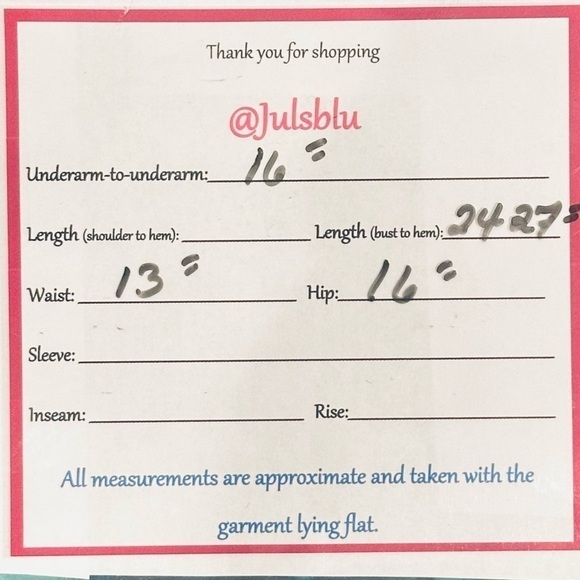 Thank you for shopping
@Julsblu
Underarm-to-underarm: 16"
Length (shoulder to hem): Length (bust to hem): 24 27"
Waist: 13" Hip: 16"
Sleeve:
Inseam: Rise:
All measurements are approximate and taken with the
garment lying flat.